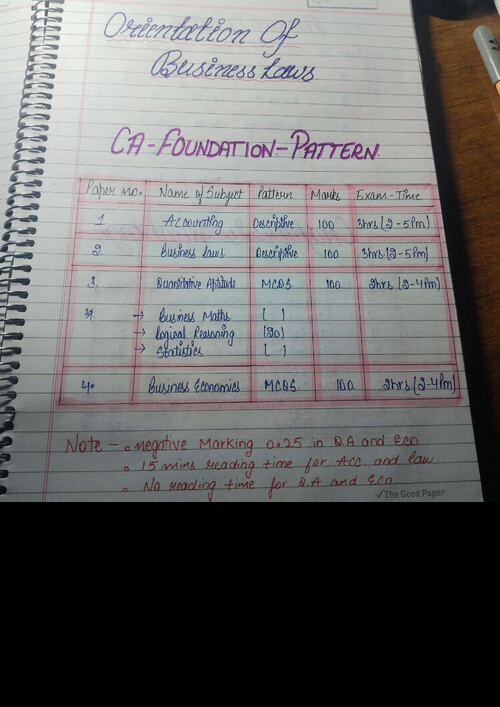 Orientation Of
Business Laws
CA-FOUNDATION-PATTERN
Paper no. Name of Subject Pattern Marks Exam-Time
1 Accounting Descriptive 100 3hrs (2-5Pm)
2. Business laws Descriptive 100 3hrs.(2-5Pm)
3. Quantitative Aptitude MCQS 100 2hrs (2-4Pm)
4. → Business Maths. ( )
→ Logical Reasoning (20)
→ Statistics ( )
4. Business Economics MCQS. 100. 2hrs (2-4Pm)
Note - o negative Marking 0.25 in Q.A and Eco
o 15 mins reading time for Acc. and law.
o No reading time for Q.A and Eco.
✓The Good Paper